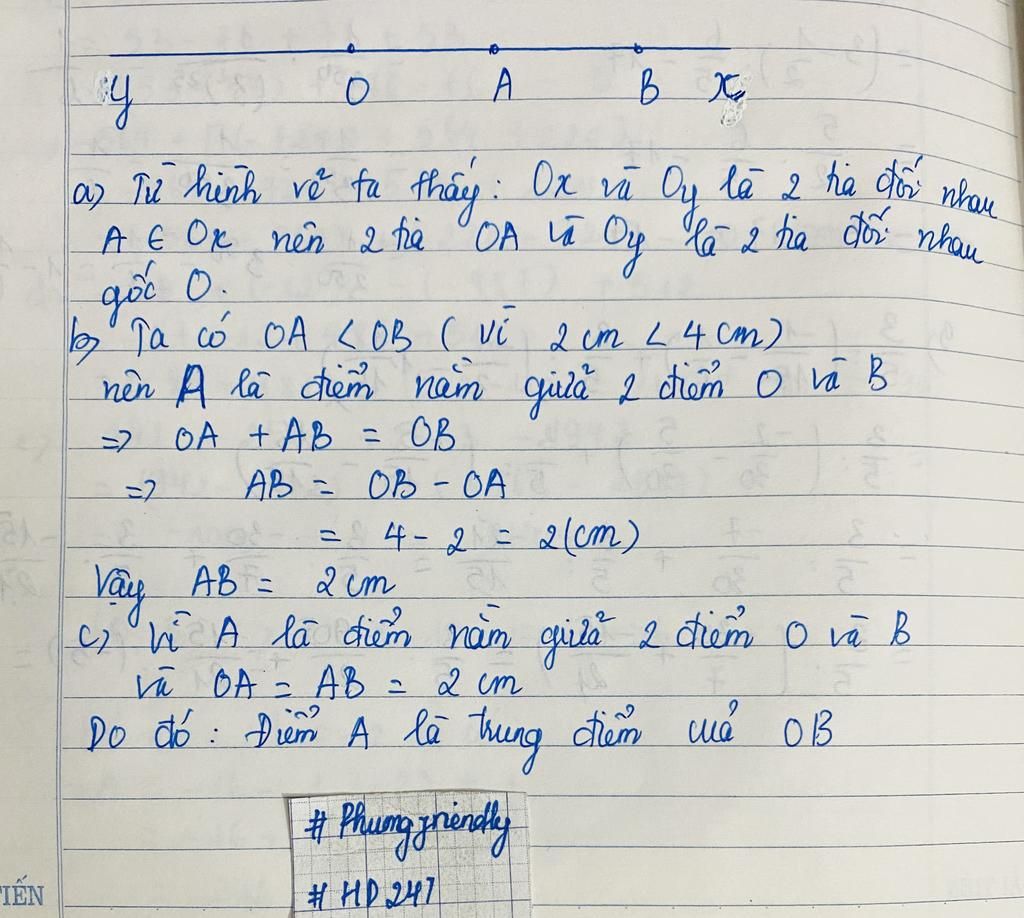 y O A B x
a) Từ hình vẽ ta thấy: Ox và Oy là 2 tia đối nhau
A ∈ Ox nên 2 tia OA và Oy là 2 tia đối nhau
gốc O.
b) Ta có OA < OB ( vì 2 cm < 4 cm)
nên A là điểm nằm giữa 2 điểm O và B
=> OA + AB = OB
=> AB = OB - OA
= 4 - 2 = 2 (cm)
Vậy AB = 2 cm
c) Vì A là điểm nằm giữa 2 điểm O và B
và OA = AB = 2 cm
Do đó: Điểm A là trung điểm của OB
# Phungfriendly
# HD247
TIẾN